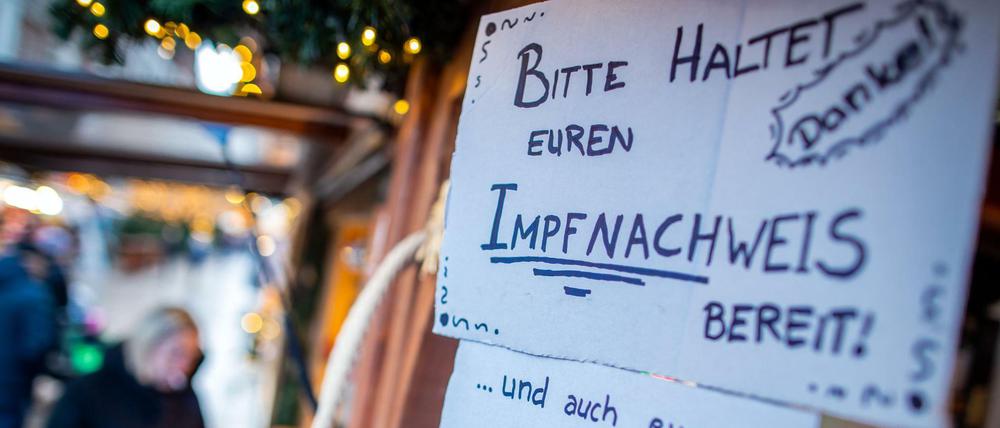 BITTE HALTET
Danke!
EUREN
IMPFNACHWEIS
BEREIT!
... und auch